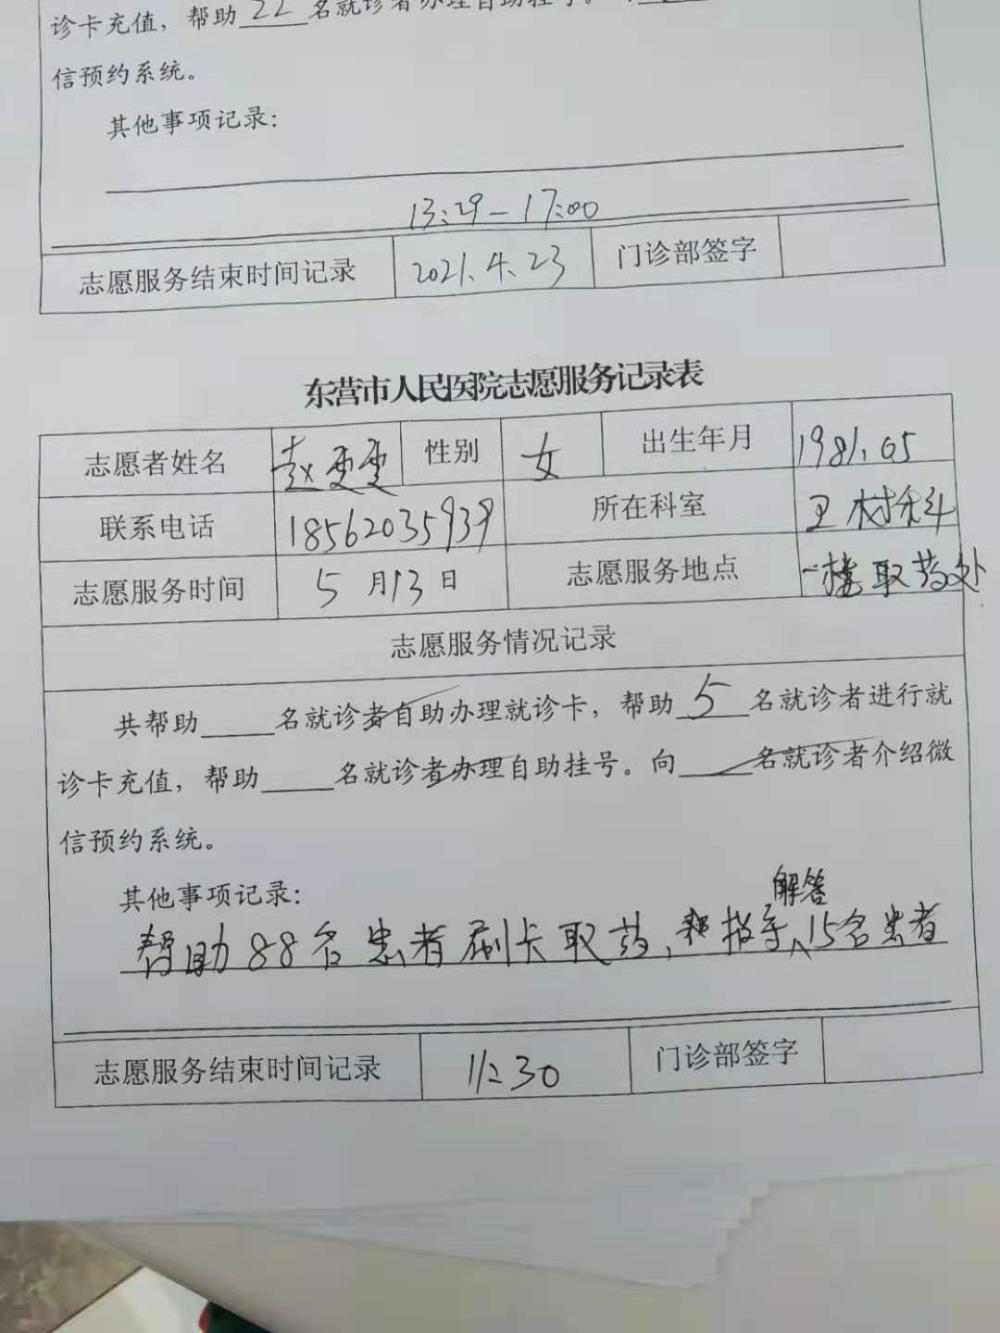 诊卡充值，帮助22名就诊者办理自助挂号。
信预约系统。
其他事项记录：
13:29-17:00
志愿服务结束时间记录 2021.4.23 门诊部签字
东营市人民医院志愿服务记录表
志愿者姓名 赵雯雯 性别 女 出生年月 1981.05
联系电话 18562035939 所在科室
志愿服务时间 5月13日 志愿服务地点 一楼取药处
志愿服务情况记录
共帮助____名就诊者自助办理就诊卡，帮助5名就诊者进行就
诊卡充值，帮助____名就诊者办理自助挂号。向____名就诊者介绍微
信预约系统。
其他事项记录：
解答
帮助88名患者刷卡取药，和指导15名患者
志愿服务结束时间记录 11:30 门诊部签字